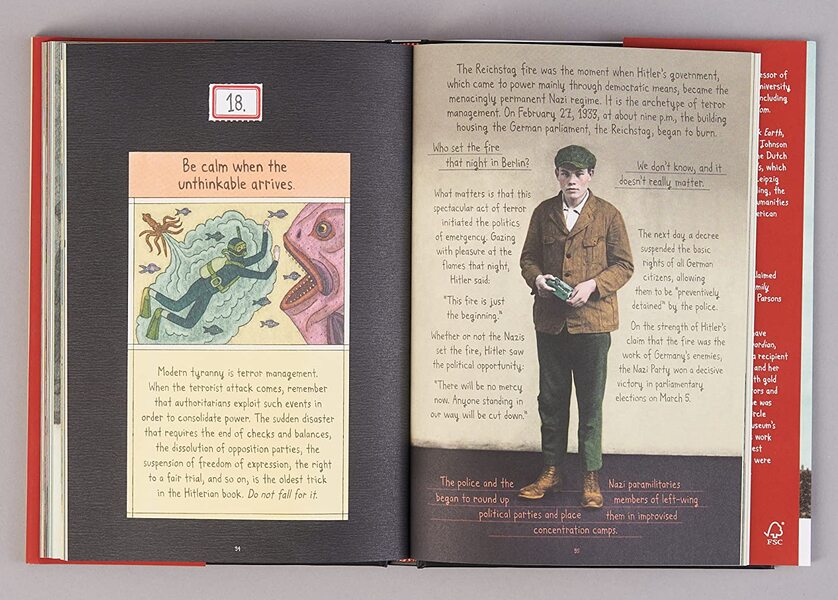 18.
Be calm when the
unthinkable arrives.
Modern tyranny is terror management.
When the terrorist attack comes, remember
that authoritarians exploit such events in
order to consolidate power. The sudden disaster
that requires the end of checks and balances,
the dissolution of opposition parties, the
suspension of freedom of expression, the right
to a fair trial, and so on, is the oldest trick
in the Hitlerian book. Do not fall for it.
34
The Reichstag fire was the moment when Hitler's government,
which came to power mainly through democratic means, became the
menacingly permanent Nazi regime. It is the archetype of terror
management. On February 27, 1933, at about nine p.m., the building
housing the German parliament, the Reichstag, began to burn.
Who set the fire
that night in Berlin?
We don't know, and it
doesn't really matter.
What matters is that this
spectacular act of terror
initiated the politics
of emergency. Gazing
with pleasure at the
flames that night,
Hitler said:
"This fire is just
the beginning."
Whether or not the Nazis
set the fire, Hitler saw
the political opportunity:
"There will be no mercy
now. Anyone standing in
our way will be cut down."
The next day a decree
suspended the basic
rights of all German
citizens, allowing
them to be "preventively
detained" by the police.
On the strength of Hitler's
claim that the fire was the
work of Germany's enemies,
the Nazi Party won a decisive
victory in parliamentary
elections on March 5.
The police and the Nazi paramilitaries
began to round up members of left-wing
political parties and place them in improvised
concentration camps.
essor of
university
including
om.
k Earth,
Johnson
e Dutch
s, which
Leipzig
ling, the
umanities
erican
claimed
mily
Parsons
ave
ordian,
a recipient
and her
th gold
ors and
e was
ircle
useum's
work
est
were
FSC